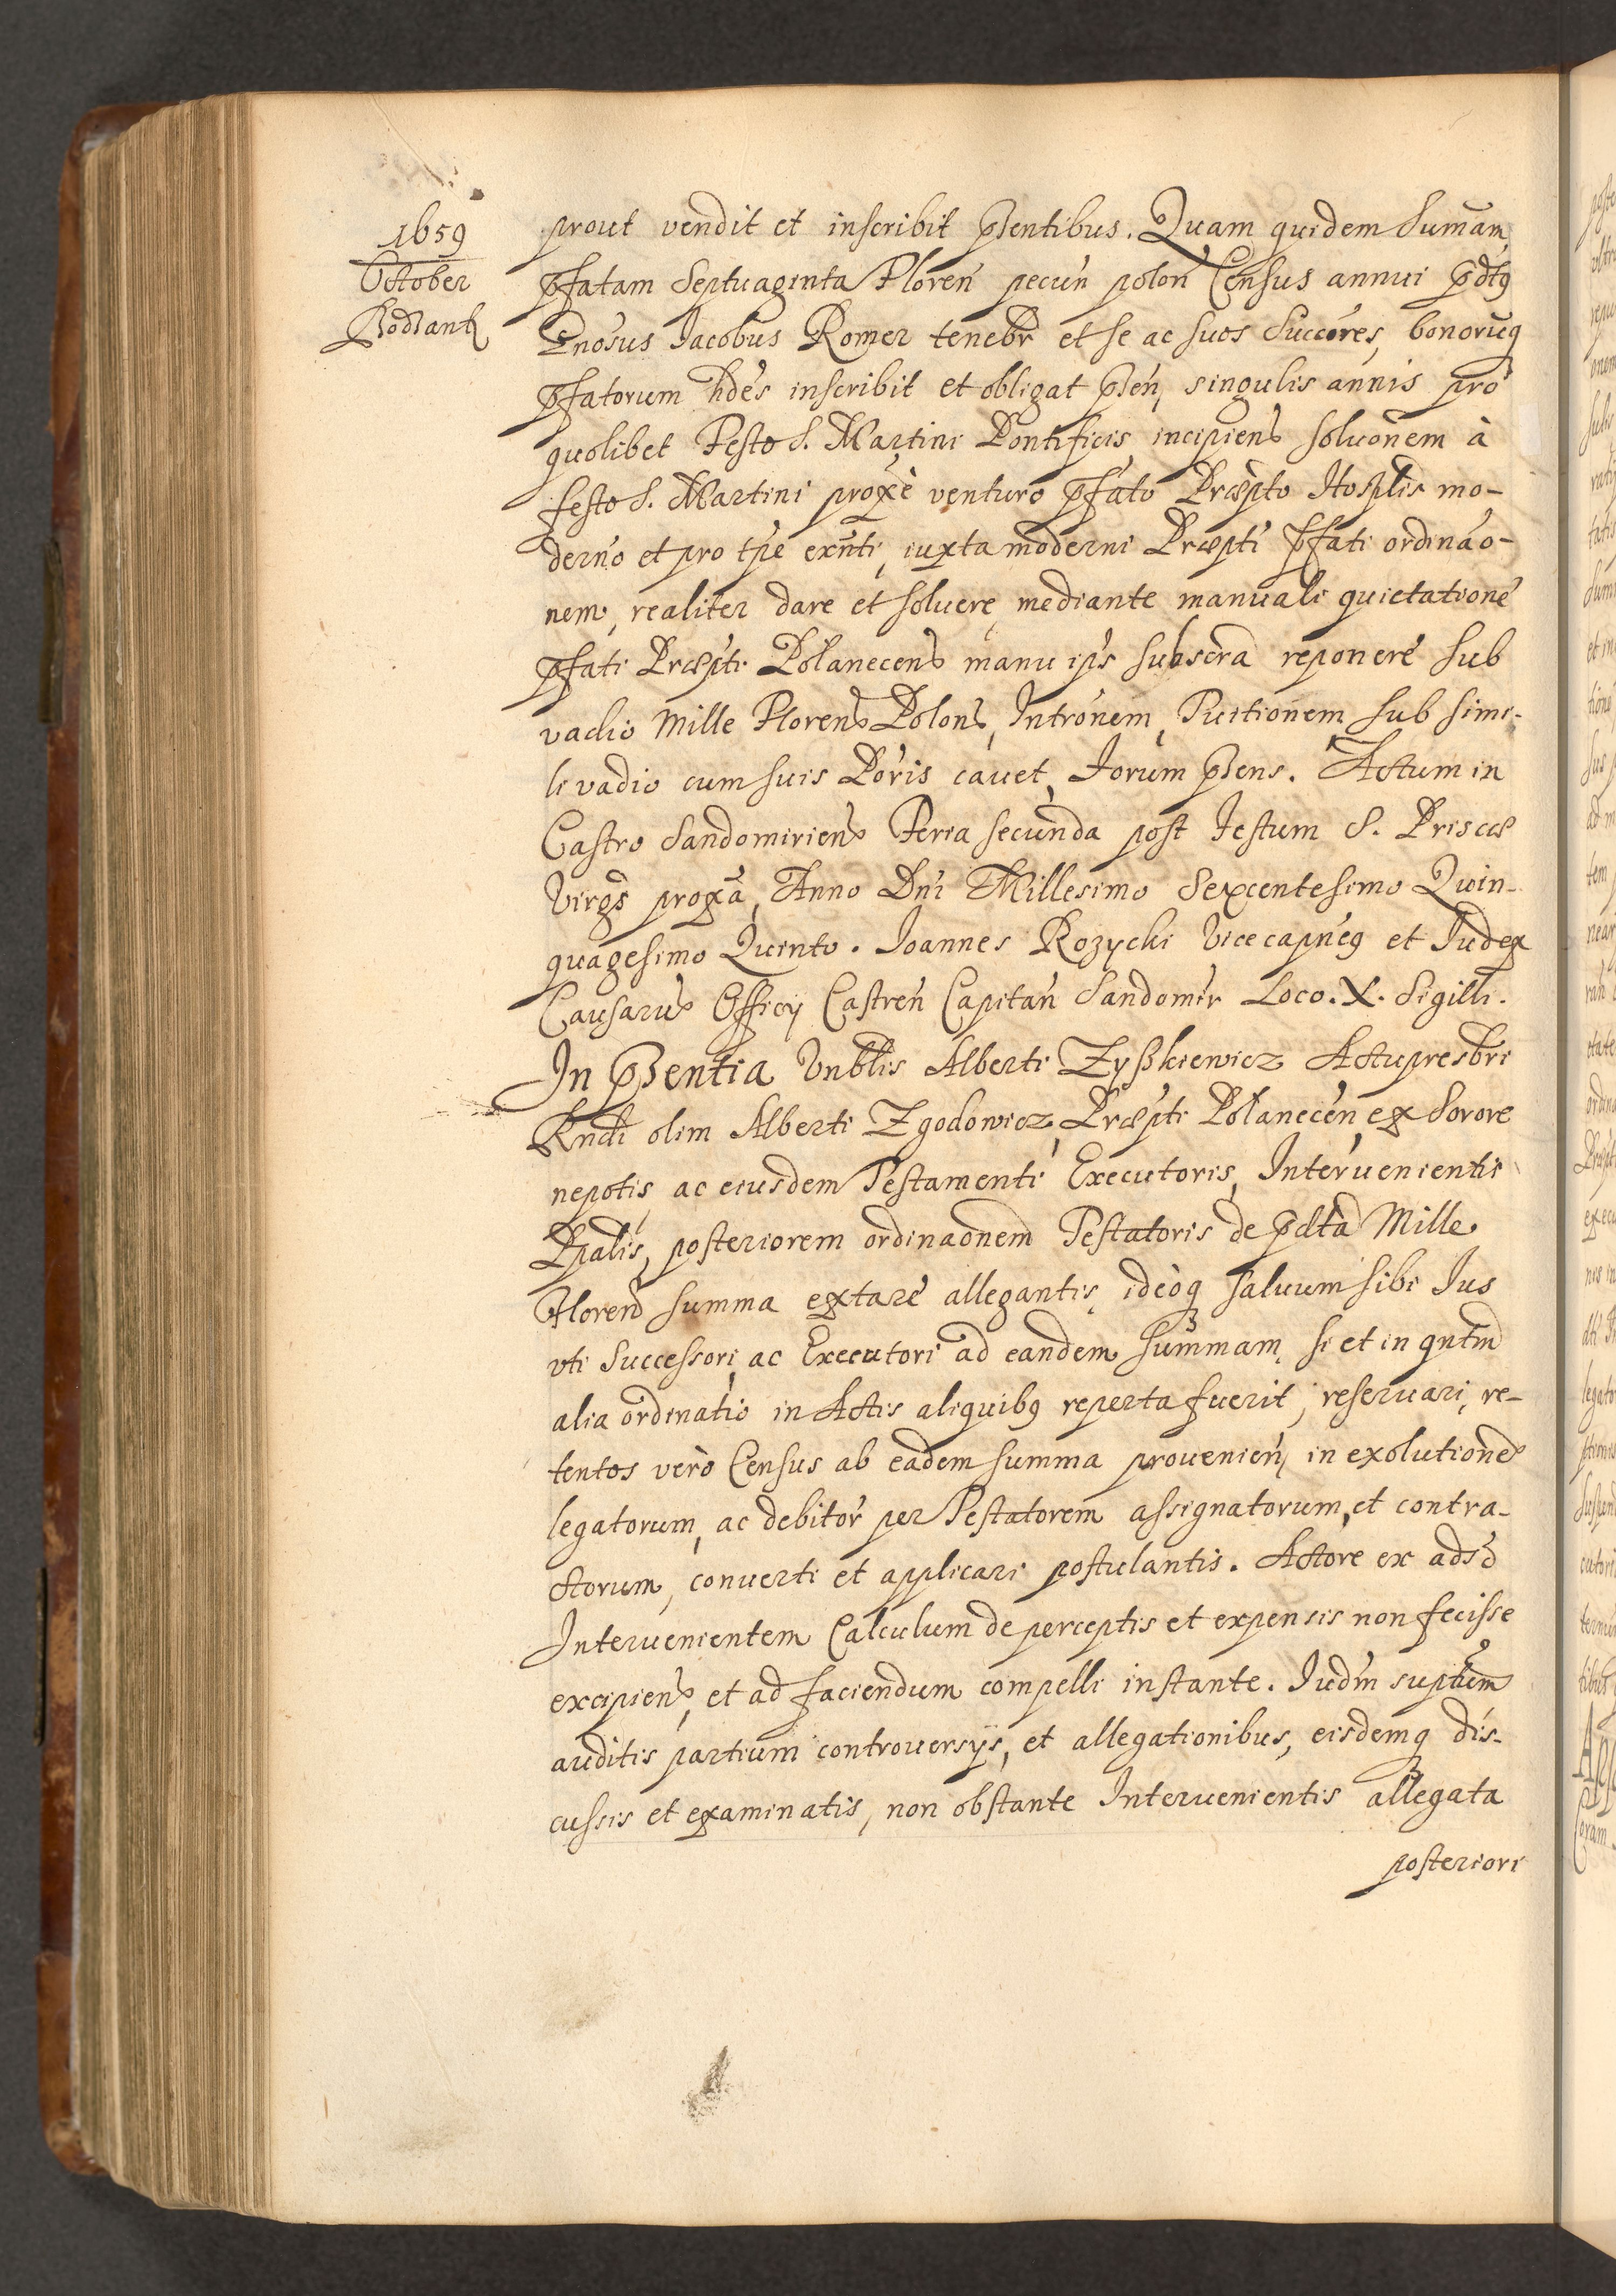 1659
October
Bodzant
prout vendit et inscribit pñsentibus. Quam quidem Sumam̃
pfatam Septuaginta Floreń pecuń poloń Census annui pdts
Gnosus Jacobus Romer tenebr et se ac suos Succores, bonorumq
pfatorum hdes inscribit et obligat pñseń, singulis annis pro
quolibet Festo S. Martini Pontificis, incipiens soluõnem à
festo S. Martini proxè venturo pfato Præpto Hosplis mo-
derno et pro tpe exñti, iuxta moderni Præpti pfati ordinão-
nem, realiter dare et soluere, mediante manuali quietationẽ
pfati Præpti Połanecens manu ips subscra reponere sub
vadio Mille Florens Polons, Introm̃em, Tuitionem sub simi-
li vadio cum suis Poris cauet, Forum pñsens. Actum in
Castro Sandomiriens Feria secunda post Festum S. Priscæ
Virgs proxã, Anno Dñi Millesimo Sexcentesimo Quin-
quagesimo Quinto. Joannes Rozycki Vicecapneg et Judex
Causarum Officij Castreń Capitań Sandomir Loco. X. Sigilli.
In pñsentia Vnblis Alberti Zyßkiewicz Actupresbri
Rndi olim Alberti Zgodowicz, Præpti Połaneceń ex Sorore
nepotis, ac eiusdem Testamenti Executoris, Interuenientis
Ppalis, posteriorem ordinaõnem Testatoris de pdta Mille
Floreń summa extare allegantis, ideoq saluum sibi Jus
vti Successori, ac Executori ad eandem summam, si et in qntm
alia ordinatio in Actis aliquibs reperta fuerit, reseruari, re-
tentos verò Census ab eadem summa prouenień, in exolutionem
legatorum, ac debitor per Testatorem assignatorum, et contra-
ctorum, conuerti et applicari postulantis. Actore ex adso
Interuenientem Calculum de perceptis et expensis non fecisse
excipiens, et ad faciendum compelli instante. Judm suptum
auditis partium controuersijs, et allegationibus, eisdemq dis-
cussis et examinatis, non obstante Interuenientis allegata
posteriori